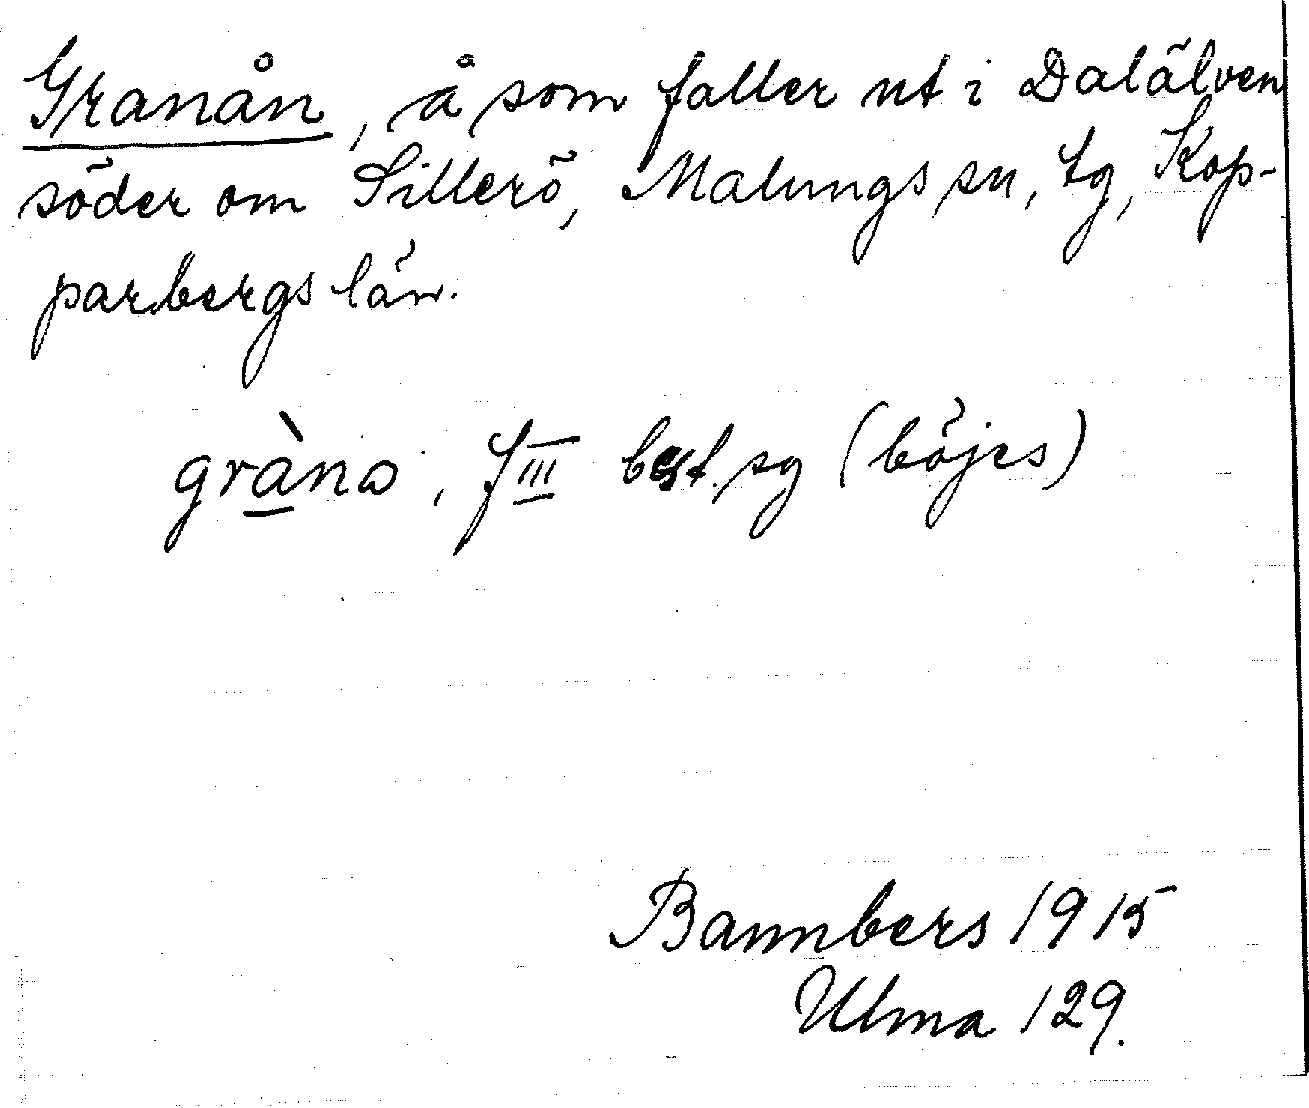 Granån, å som faller ut i Dalälven
söder om Sillerö, Malungs sn, tg, Kop-
parbergs län.
gràna, f III best. sg (böjes)
Bannbers 1915
Ulma 129.